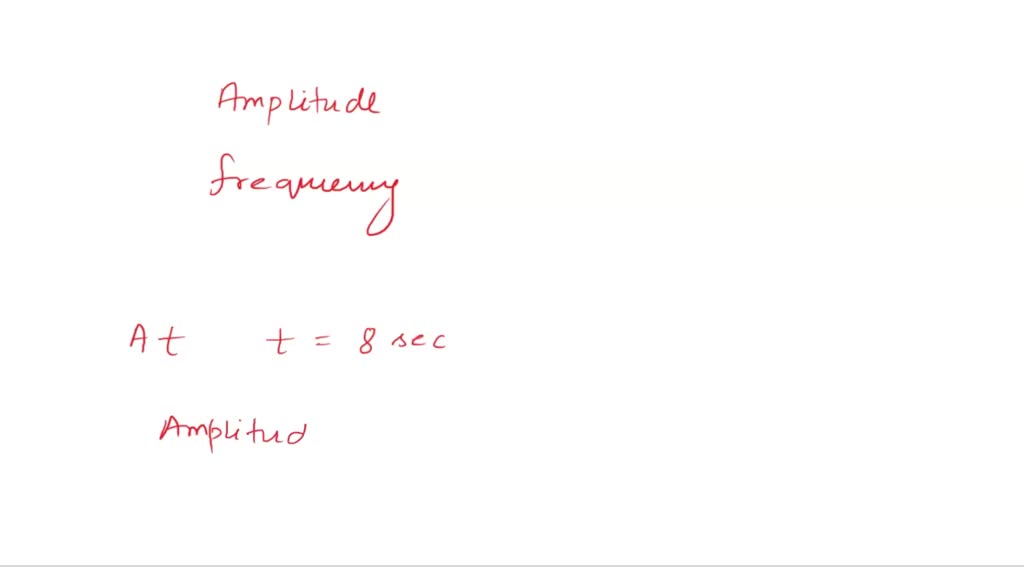 Amplitude
frequency
At t = 8 sec
Amplitud